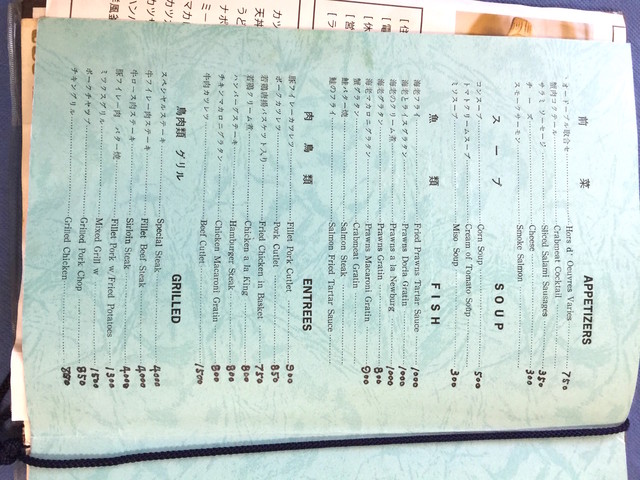 前菜 APPETIZERS
オードーブル取合せ Hors d' Oeuvres Varies 750
蟹肉コクテール Crabmeat Cocktail
サラミソーセージ Sliced Salami Sausages 350
チーズ Cheese 300
スモークサーモン Smoke Salmon
スープ SOUP
コンスープ Corn Soup 500
トマトクリームスープ Cream of Tomato Soup
ミソスープ Miso Soup 300
魚類 FISH
海老フライ Fried Prawns Tartar Sauce 1000
海老とライスグラタン Prawns Doria Gratin 1000
海老のクリーム煮 Prawns a la Newburg 1000
海老グラタン Prawns Gratin 800
海老マカロニグラタン Prawns Macaroni Gratin 900
蟹グラタン Crabmeat Gratin
鮭バター焼 Salmon Steak
鮭のフライ Salmon Fried Tartar Sauce
肉鳥類 ENTREES
豚フィレーカツレツ Fillet Pork Cutlet 900
ポークカツレツ Pork Cutlet 850
若鶏唐揚バスケット入り Fried Chicken in Basket 750
若鶏クリーム煮 Chicken a la King 800
ハンバーグステーキ Hamburg Steak 800
チキンマカロニグラタン Chicken Macaroni Gratin 800
牛肉カツレツ Beef Cutlet 1500
鳥肉類 グリル GRILLED
スペシャルステーキ Special Steak 4000
牛フィレー肉ステーキ Fillet Beef Steak 4000
牛ロース肉ステーキ Sirloin Steak 4000
豚フィレー肉 バター焼 Fillet Pork w/ Fried Potatoes 1300
ミックスグリル Mixed Grill w 1500
ポークチャップ Grilled Pork Chop 850
チキングリル Grilled Chicken